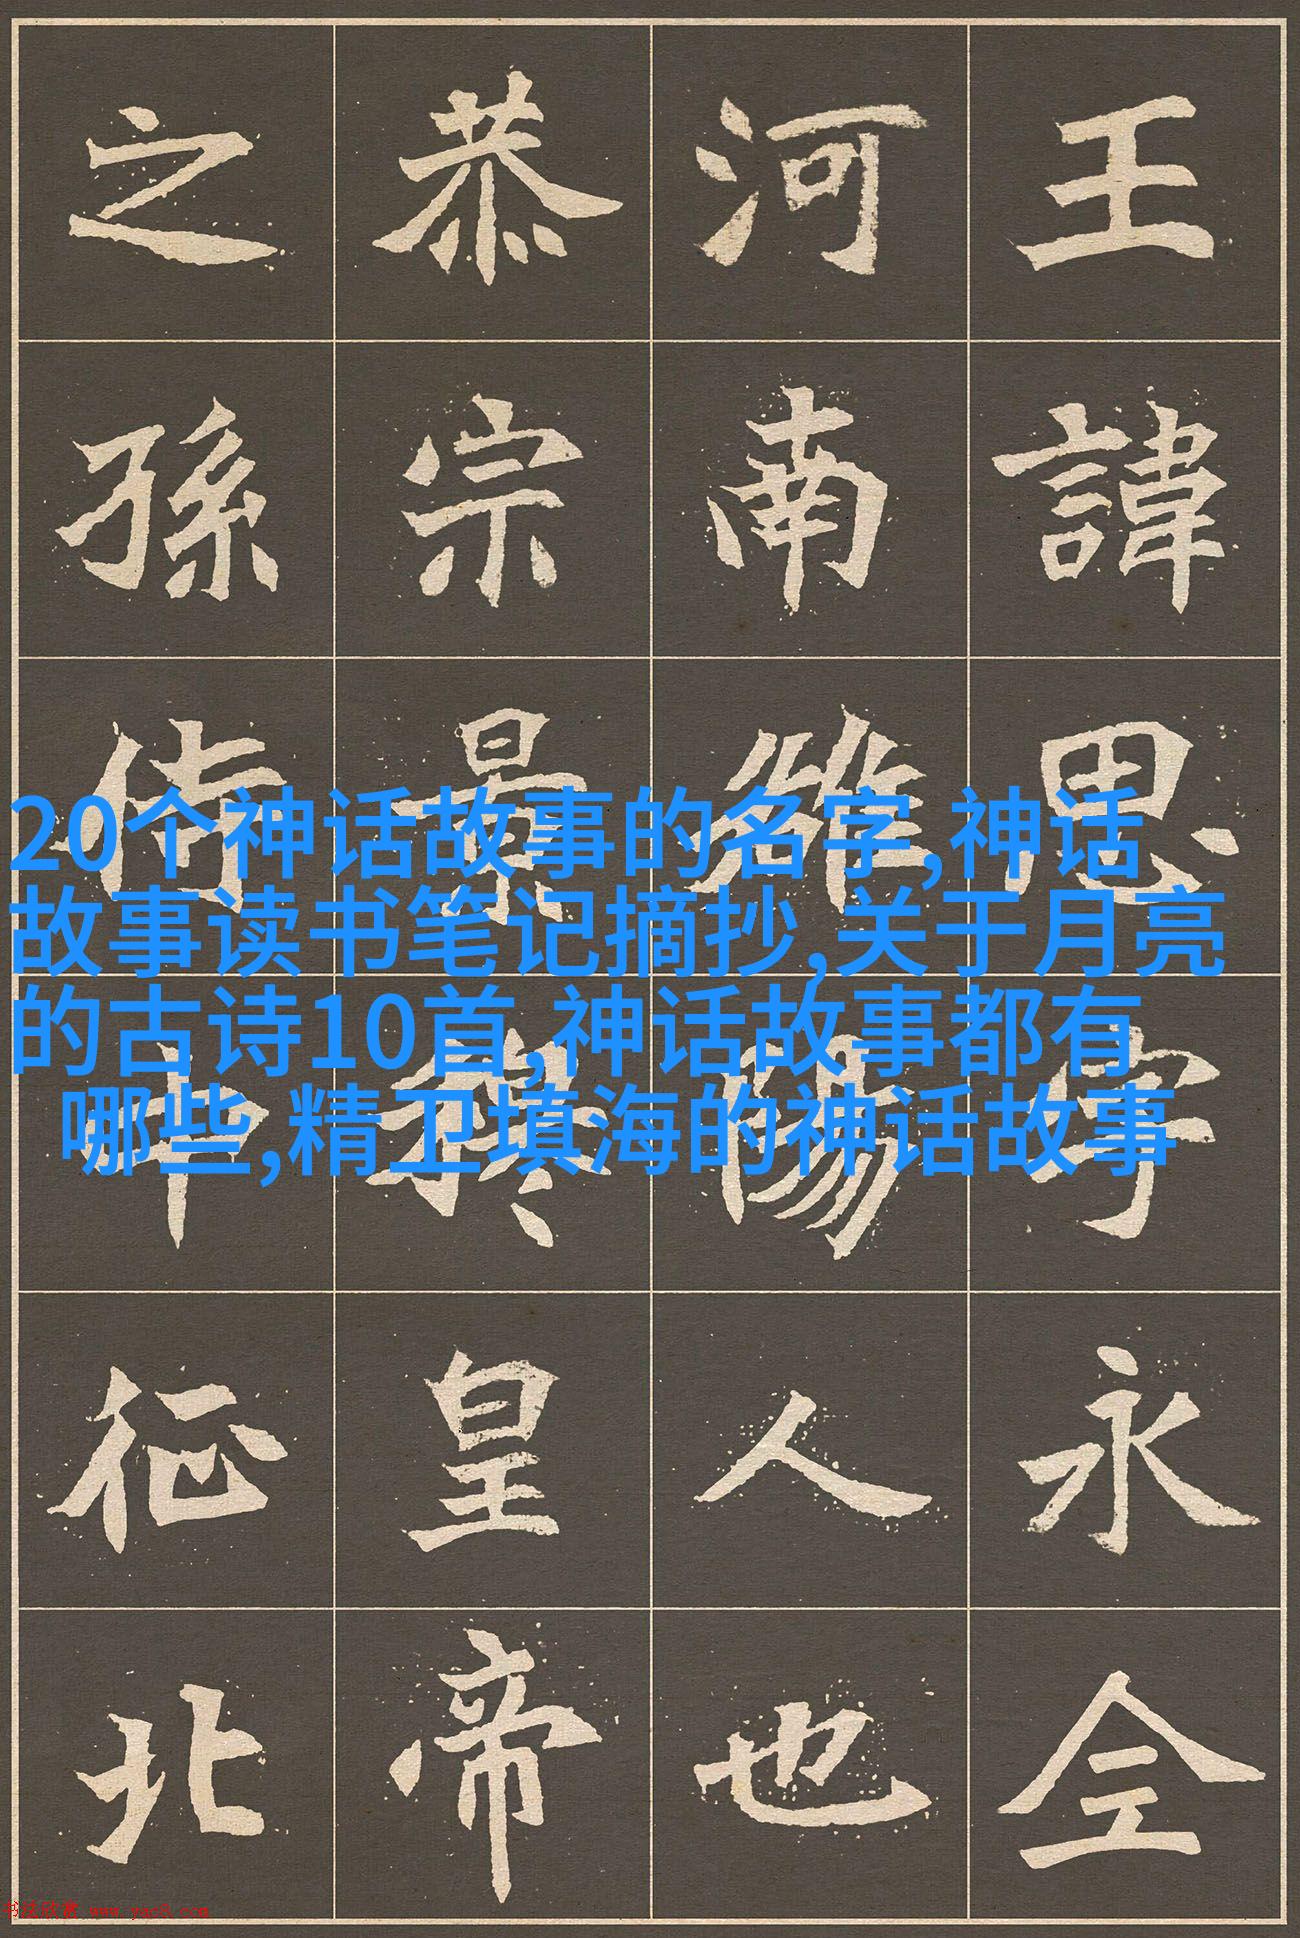 王諱思字永全
河南雒陽人也
恭宗景穆皇帝
之孫侍中征北
20个神话故事的名字,神话
故事读书笔记摘抄,关于月亮
的古诗10首,神话故事都有
哪些,精卫填海的神话故事
书法欣赏 www.yac8.com